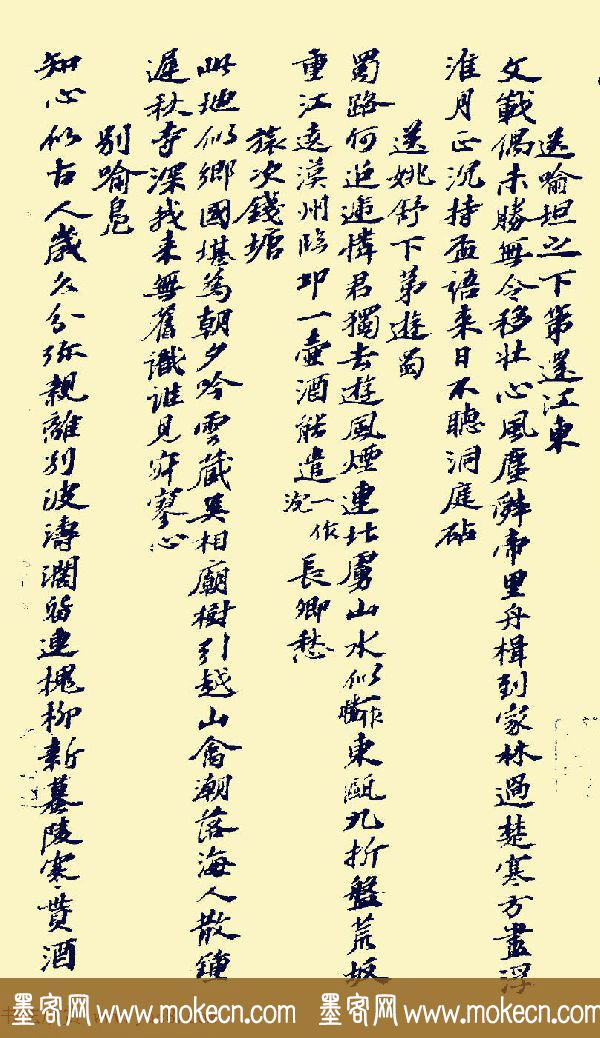 送喻坦之下第還江東
文戰偶未勝無令移壯心風塵辭帝里舟楫到家林過楚寒方盡浮
淮月正沉持盃語來日不聽洞庭砧
送姚舒下第遊蜀
蜀路何迢遞憐君獨去遊風煙連北虜山水似一作勝東甌九折盤荒坂
重江遶漢州臨邛一壺酒能遣一作沉長卿愁
旅次錢塘
此地似鄉國堪為朝夕吟雲藏吳相廟樹引越山禽潮落海人散鐘
遲秋寺深我來無舊識誰見寂寥心
別喻鳧
知心似古人歲久分弥親離別波濤濶留連槐柳新蟇陵寒貰酒
墨客网 www.mokecn.com 墨客网 www.mokecn.com